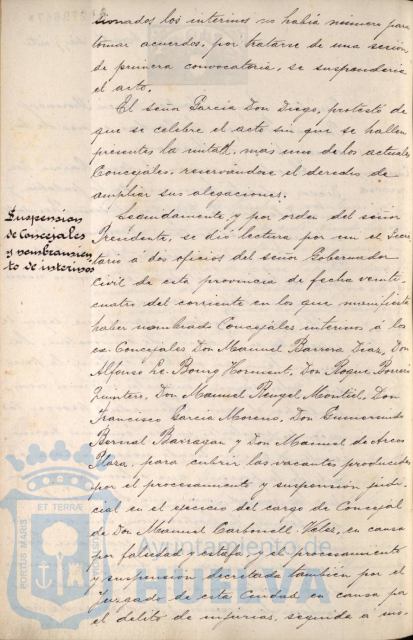 cionados los interinos no había número para
tomar acuerdos, por tratarse de una sesión
de primera convocatoria, se suspendería
el acto.
El señor García Don Diego, protestó de
que se celebre el acto sin que se hallen
presentes la mitad mas uno de los actuales
Concejales, reservándose el derecho de
ampliar sus alegaciones.
Suspension
de Concejales
y nombramien
to de interinos
Secundamente, y por orden del señor
Presidente, se dió lectura por mi el Secre
tario a dos oficios del señor Gobernador
Civil de esta provincia de fecha veinti-
cuatro del corriente en los que manifiesta
haber nombrado Concejales interinos á los
ex-Concejales Don Manuel Barrera Diaz, Don
Alfonso Le Bourg Horment, Don Roque Borrero
Quintero, Don Manuel Rengel Montiel, Don
Francisco Garcia Moreno, Don Gumersindo
Bernal Barragan y Don Manuel de Arcos
Plaza, para cubrir las vacantes producidas
por el procesamiento y suspensión judi
cial en el ejercicio del cargo de Concejal
de Don Manuel Carbonell Velez, en causa
por falsedad y estafa, y el procesamiento
y suspensión decretada también por el
Juzgado de esta Ciudad, en causa por
el delito de injurias, seguida á ins-
PORTUS MARIS
ET TERRÆ
CUSTODIA
Ayuntamiento de
HUELVA